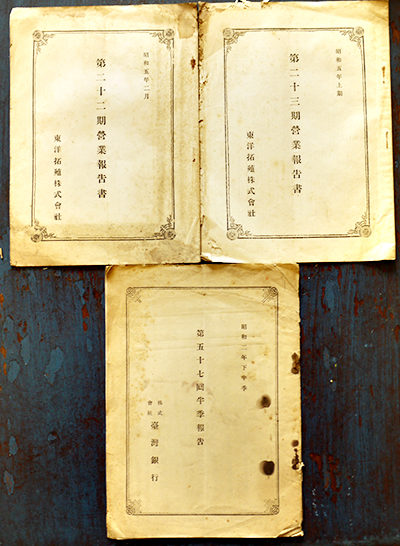 昭和五年二月
第二十二期營業報告書
東洋拓殖株式會社
昭和五年上期
第二十三期營業報告書
東洋拓殖株式會社
昭和二年下半季
第五十七回半季報告
株式會社 臺灣銀行